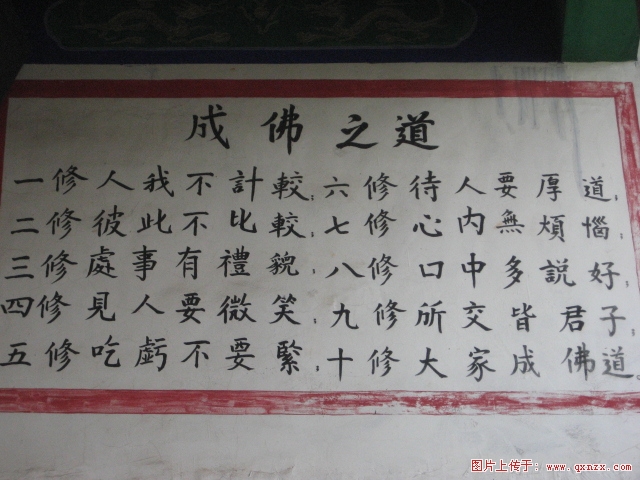 成佛之道
一修人我不計較；六修待人要厚道；
二修彼此不比較；七修心内無煩惱；
三修處事有禮貌；八修口中多説好；
四修見人要微笑；九修所交皆君子；
五修吃虧不要緊；十修大家成佛道。
图片上传于：www.qxnzx.com